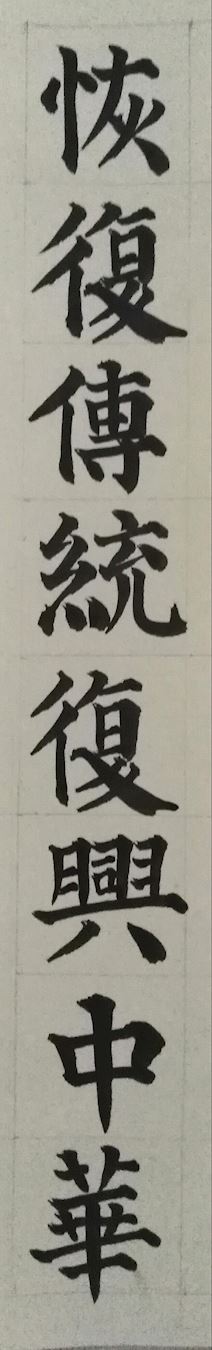 恢復傳統復興中華